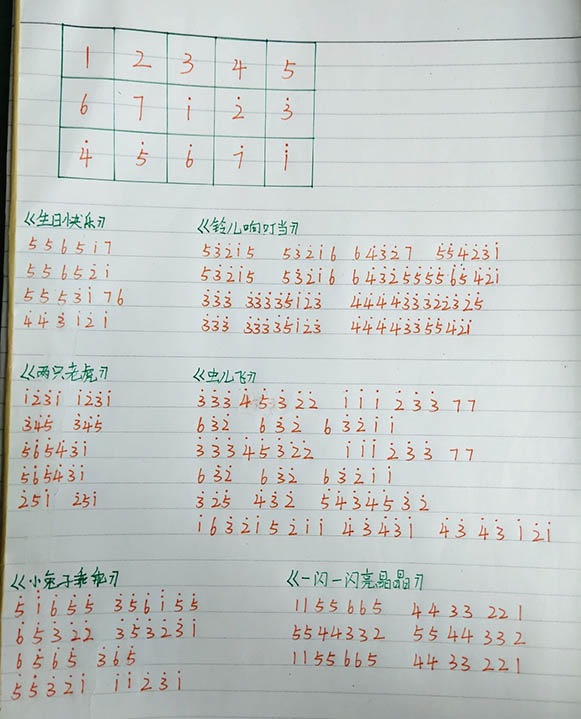 1 2 3 4 5
6 7 i 2̇ 3̇
4̇ 5̇ 6̇ 7̇ i
《生日快乐》
5 5 6 5 i 7
5 5 6 5 2̇ i
5 5 5̇ 3̇ i 7 6
4̇ 4̇ 3̇ i 2̇ i
《铃儿响叮当》
5 3̇ 2̇ i 5 5 3̇ 2̇ i 6 6 4̇ 3̇ 2̇ 7 5̇ 5̇ 4̇ 2̇ 3̇ i
5 3̇ 2̇ i 5 5 3̇ 2̇ i 6 6 4̇ 3̇ 2̇ 5̇ 5̇ 5̇ 5̇ 6̇ 5̇ 4̇ 2̇ i
3̇ 3̇ 3̇ 3̇ 3̇ 3̇ 3̇ 5̇ i 2̇ 3̇ 4̇ 4̇ 4̇ 4̇ 3̇ 3̇ 2̇ 2̇ 3̇ 2̇ 5̇
3̇ 3̇ 3̇ 3̇ 3̇ 3̇ 3̇ 5̇ i 2̇ 3̇ 4̇ 4̇ 4̇ 4̇ 3̇ 3̇ 5̇ 5̇ 4̇ 2̇ i
《两只老虎》
i 2̇ 3̇ i i 2̇ 3̇ i
3̇ 4̇ 5̇ 3̇ 4̇ 5̇
5̇ 6̇ 5̇ 4̇ 3̇ i
5̇ 6̇ 5̇ 4̇ 3̇ i
2̇ 5 i 2̇ 5 i
《虫儿飞》
3̇ 3̇ 3̇ 4̇ 5̇ 3̇ 2̇ 2̇ i i i 2̇ 3̇ 3̇ 7 7
6 3̇ 2̇ 6 3̇ 2̇ 6 3̇ 2̇ i i
3̇ 3̇ 3̇ 4̇ 5̇ 3̇ 2̇ 2̇ i i i 2̇ 3̇ 3̇ 7 7
6 3̇ 2̇ 6 3̇ 2̇ 6 3̇ 2̇ i i
3̇ 2̇ 5̇ 4̇ 3̇ 2̇ 5̇ 4̇ 3̇ 4̇ 5̇ 3̇ 2̇
i 6 3̇ 2̇ i 5 2̇ i i 4̇ 3̇ 4̇ 3̇ i 4̇ 3̇ 4̇ 3̇ i 2̇ i
《小兔子乖乖》
5̇ i 6̇ 5̇ 5̇ 3̇ 5̇ 6̇ i 5̇ 5̇
6̇ 5̇ 3̇ 2̇ 2̇ 3̇ 5̇ 3̇ 2̇ 3̇ i
6̇ 5̇ 6̇ 5̇ 3̇ 6̇ 5̇
5̇ 5̇ 3̇ 2̇ i i i 2̇ 3̇ i
《一闪一闪亮晶晶》
1 1 5 5 6 6 5 4 4 3 3 2 2 1
5 5 4 4 3 3 2 5 5 4 4 3 3 2
1 1 5 5 6 6 5 4 4 3 3 2 2 1